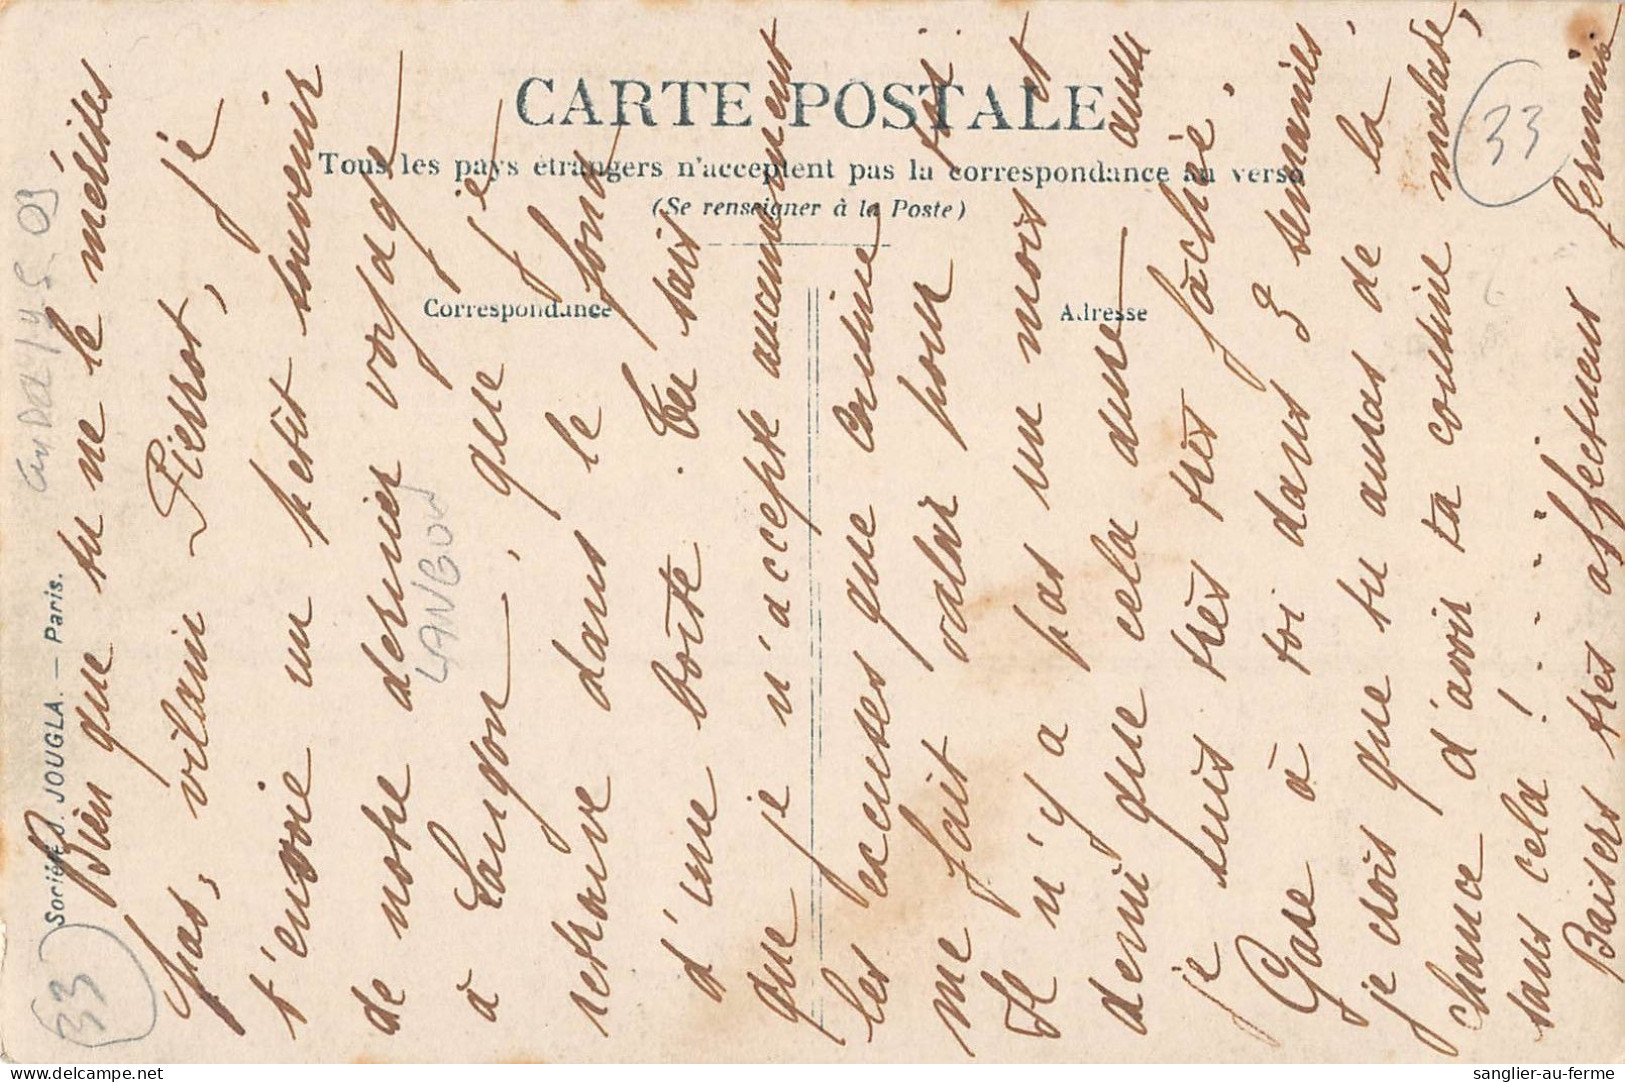 CARTE POSTALE
Tous les pays étrangers n'acceptent pas la correspondance au verso
(Se renseigner à la Poste)
Correspondance
Adresse
Société J. JOUGLA. — Paris.
33
33
LANGON
Bien que tu ne le mérites
pas, vilain Pierrot, je
t'envoie un petit souvenir
de notre dernier voyage
à Langon, que je
retrouve dans le fond
d'une boîte. Tu sais
que je n'accepte aucunement
les excuses que Corinne
me fait valoir pour toi.
Il n'y a pas un mois et
demi que cela dure aussi
je suis très très très fâchée,
Gare à toi dans 3 semaines,
je crois que tu auras de la
chance d'avoir ta cousine malade,
sans cela !
Baisers très affectueux Germaine
sanglier-au-ferme